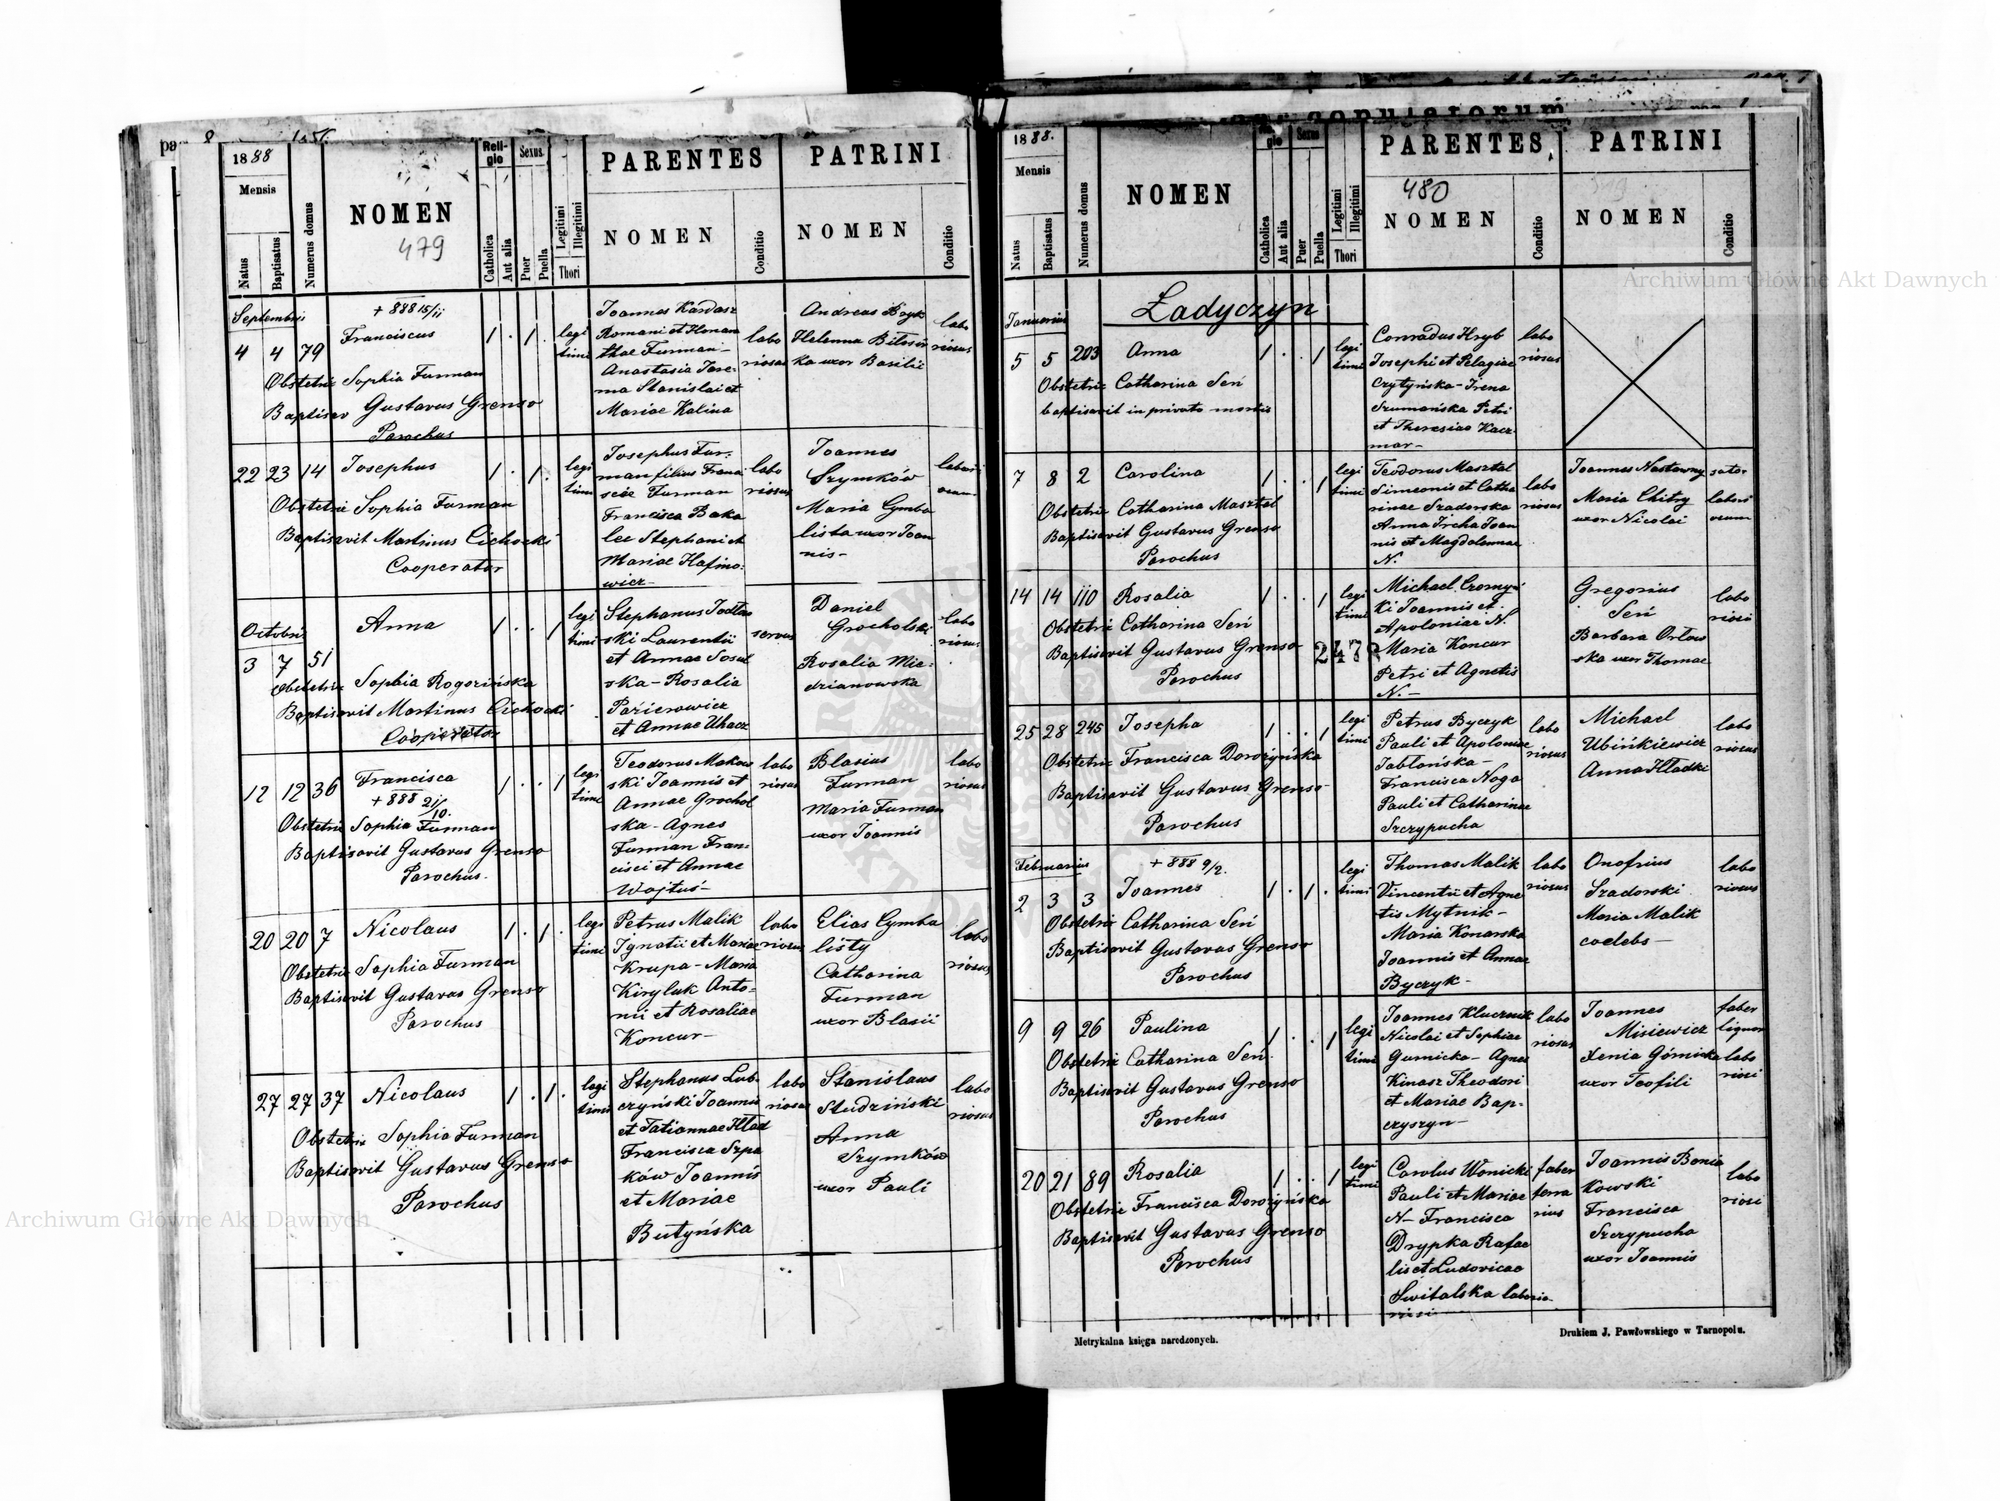 1888
Mensis
Natus
Baptisatus
Numerus domus
NOMEN
479
Reli-
gio
Catholica
Aut alia
Sexus
Puer
Puella
Legitimi
Illegitimi
Thori
PARENTES
NOMEN
Conditio
PATRINI
NOMEN
Conditio
Septembris
4 4 79
+ 888 15/11
Franciscus
Obstetrix Sophia Furman
Baptisav Gustavus Grenso
Parochus
legi
timi
Joannes Kardasz
Romani et Honora
thae Furman-
Anastasia Jare-
ma Stanislai et
Mariae Kalina
labo
riosus
Andreas Bryk
Helenna
ka uxor Basilii
labo
riosus
22 23 14 Josephus
Obstetrix Sophia Furman
Baptisavit Martinus Cichocki
Cooperator
legi
timi
Josephus Fur-
man filius Franci
scis Furman
Francisca Baka
lec Stephani et
Mariae Hafino-
wicz-
labo
riosus
Joannes
Szymków
Maria Cymba
lista uxor Joan
nis-
labori
osus
Octobris
3 7 51
Anna
Obstetrix Sophia Rogozińska
Baptisavit Martinus Cichocki
Cooperator
legi
timi
Stephanus
ski Laurentii
et Annae Sosul
ska - Rosalia
Pazierowicz
et Annae Uhacz
servus
Daniel
Grocholski
Rosalia Mie-
drianowska
labo
riosus
12 12 36 Francisca
+ 888 21/10.
Obstetrix Sophia Furman
Baptisavit Gustavus Grenso
Parochus.
legi
timi
Teodorus Makow
ski Joannis et
Annae Grochol
ska - Agnes
Furman Fran-
cisci et Annae
Wojtuś-
labo
riosus
Blasius
Furman
Maria Furman
uxor Joannis
labo
riosus
20 20 7 Nicolaus
Obstetrix Sophia Furman
Baptisavit Gustavus Grenso
Parochus
legi
timi
Petrus Malik
Ignatii et Mariae
Krupa - Maria
Kiryluk Anto-
nii et Rosaliae
Koncur-
labo
riosus
Elias Cymba
listy
Catharina
Furman
uxor Blasii
labo
riosus
27 27 37 Nicolaus
Obstetrix Sophia Furman
Baptisavit Gustavus Grenso
Parochus
legi
timi
Stephanus Lub-
czyński Joannis
et Tatiannae Hlad
Francisca Szpa
ków Joannis
et Mariae
Butyńska
labo
riosus
Stanislaus
Studziński
Anna
Szymków
uxor Pauli
labo
riosus
1888.
Mensis
Natus
Baptisatus
Numerus domus
NOMEN
gio
Catholica
Aut alia
Sexus
Puer
Puella
Legitimi
Illegitimi
Thori
PARENTES
480
NOMEN
Conditio
PATRINI
NOMEN
Conditio
Ładyczyn
Januarius
5 5 203 Anna
Obstetrix Catharina Seń
baptisavit in privato mortis
legi
timi
Conradus Hryb
Josephi et Pelagiae
Czytyńska - Irena
Szumańska Petri
et Theresiae Kacz
mar-
labo
riosus
7 8 2 Carolina
Obstetrix Catharina Masztal
Baptisavit Gustavus Grenso
Parochus
legi
timi
Teodorus Masztal
Simeonis et Catha
rinae Szadorska
Anna Ircha Joan
nis et Magdalennae
N.
labo
riosus
Joannes Nastawny
Maria Chitry
uxor Nicolai
sator
labori
osus
14 14 110 Rosalia
Obstetrix Catharina Seń
Baptisavit Gustavus Grenso
Parochus
legi
timi
2478
Michael
ki Joannis et
Apoloniae N.
Maria Koncur
Petri et Agnetis
N.-
Gregorius
Seń
Barbara Orłow
ska uxor Thomae
labo
riosi
25 28 245 Josepha
Obstetrix Francisca Dorożyńska
Baptisavit Gustavus Grenso
Parochus
legi
timi
Petrus Byczyk
Pauli et Apoloniae
Jabłońska-
Francisca Noga
Pauli et Catharinae
Szczypucha
labo
riosus
Michael
Ubińkiewicz
Anna Hładki
labo
riosus
Februarius
2 3 3
+ 888 9/2.
Joannes
Obstetrix Catharina Seń
Baptisavit Gustavus Grenso
Parochus
legi
timi
Thomas Malik
Vincentii et Agne
tis Mytnik-
Maria Konarska
Joannis et Annae
Byczyk-
labo
riosus
Onofrius
Szadorski
Maria Malik
caelebs-
labo
riosus
9 9 26 Paulina
Obstetrix Catharina Seń
Baptisavit Gustavus Grenso
Parochus
legi
timi
Joannes Klucznik
Nicolai et Sophiae
Gurnicka - Agnes
Kinasz Theodori
et Mariae Bap-
czyszyn-
labo
riosus
Joannes
Misiewicz
Xenia Górnicka
uxor Teofili
faber
lignar
labo
riosi
20 21 89 Rosalia
Obstetrix Francisca Dorożyńska
Baptisavit Gustavus Grenso
Parochus
legi
timi
Carolus Wonicki
Pauli et Mariae
N- Francisca
Drypka Rafae
lis et Ludovicae
Switalska laborio
faber
ferra
rius
Joannis Bonia
kowski
Francisca
Szczypucha
uxor Joannis
labo
riosi
Metrykalna księga narodzonych.
Drukiem J. Pawłowskiego w Tarnopolu.
Archiwum Główne Akt Dawnych
Archiwum Główne Akt Dawnych